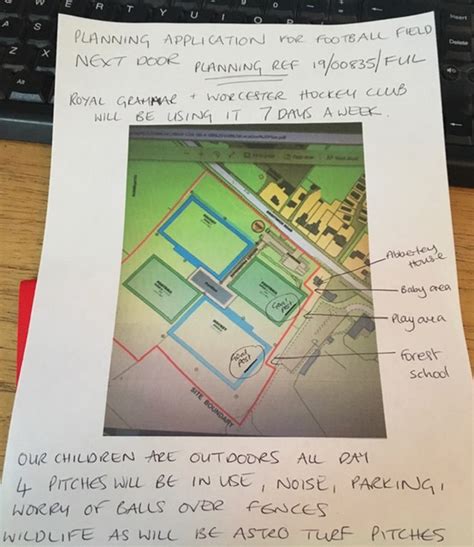 PLANNING APPLICATION FOR FOOTBALL FIELD
NEXT DOOR PLANNING REF 19/00835/FUL
ROYAL GRAMMAR + WORCESTER HOCKEY CLUB
WILL BE USING IT 7 DAYS A WEEK.
Abberley House
Baby area
Play area
Goal Post
Forest school
Goal Post
SITE BOUNDARY
OUR CHILDREN ARE OUTDOORS ALL DAY
4 PITCHES WILL BE IN USE, NOISE, PARKING,
WORRY OF BALLS OVER FENCES
WILDLIFE AS WILL BE ASTRO TURF PITCHES